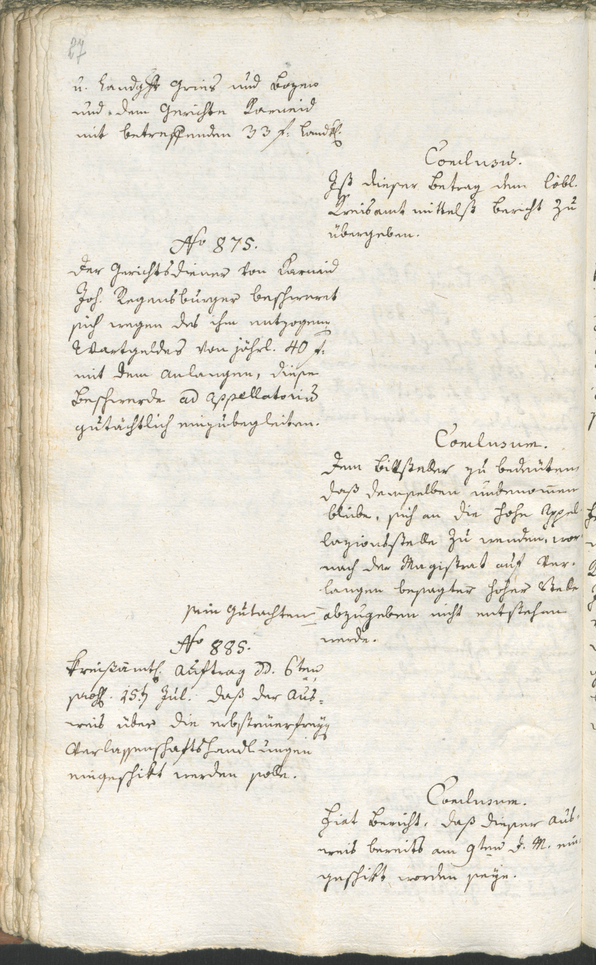 27
u. Landgst Gries und Bozen
und dem Gerichte Karneid
mit betreffenden 33 f. Landtl.
Conclusum.
Ist dieser Betrag dem löbl.
Kreisamt mittelst Bericht zu
übergeben.
No 875.
Der Gerichtsdiener von Karneid
Joh. Regensburger beschweret
sich wegen des ihm entzogenen
Wartgeldes von jährl. 40 f.
mit dem Anlangen, diese
Beschwerde ad Appellatorium
gutächtlich einzubegleiten.
Conclusum.
Dem Bittsteller zu bedeuten
daß demselben unbenommen
bleibe, sich an die hohe Appel
lazionsstelle zu wenden, wor
nach der Magistrat auf Ver-
langen besagter hoher Stelle
sein Gutachten abzugeben nicht entstehen
werde.
No 885.
Kreisämtl. Auftrag dd. 6ten
praes. 15ten Jul. daß der Aus-
weis über die erbsteuerfreyen
Verlassenschaftshandlungen
eingeschikt werden solle.
Conclusum.
Fiat Bericht, daß dieser Aus-
weis bereits am 9ten d. M. ein
geschikt worden seye.